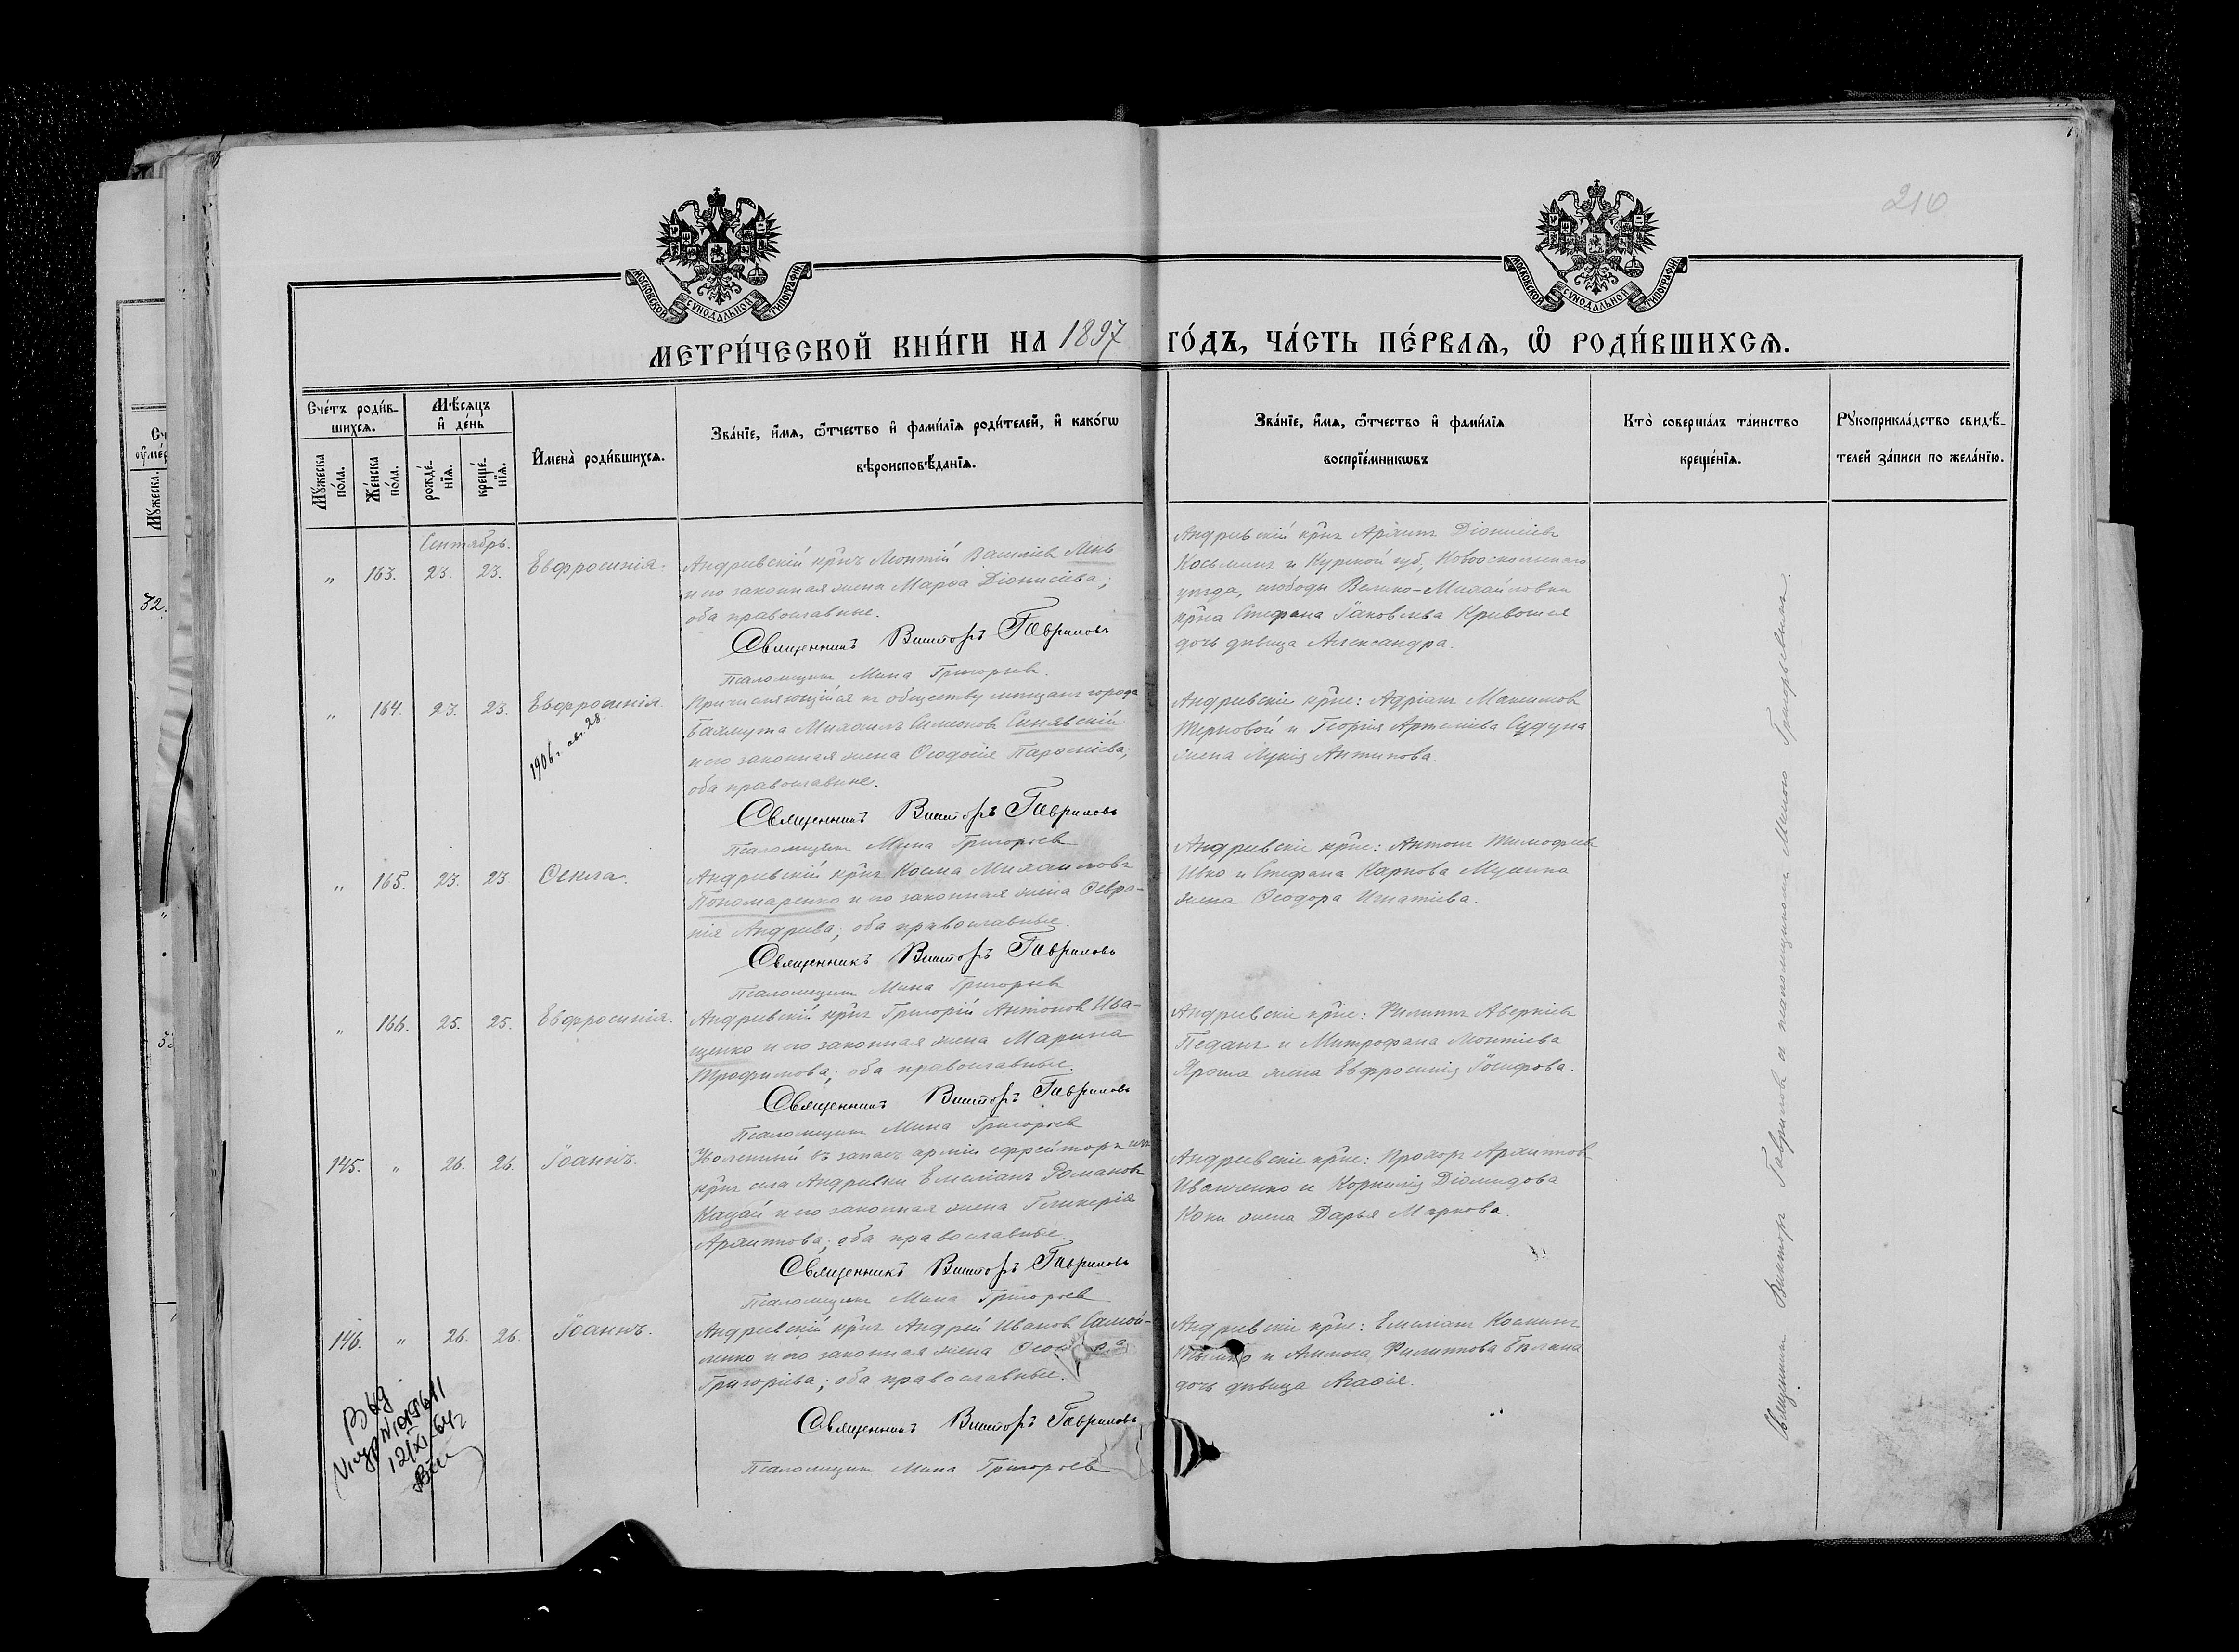 210
МОСКОВСКОЙ СУНОДАЛЬНОЙ ТИПОГРАФІИ
МОСКОВСКОЙ СУНОДАЛЬНОЙ ТИПОГРАФІИ
МЕТРИ́ЧЕСКОЙ КНИ́ГИ НА 1897 ГО́ДЪ, ЧА́СТЬ ПЕ́РВАѦ, Ѽ РОДИ́ВШИХСѦ.
Сче́тъ роди́в-
шихсѧ.
Мꙋ́жеска по́ла.
Же́нска по́ла.
Мѣ́сѧцъ и҆ де́нь
рожде́-нїѧ.
креще́-нїѧ.
И҆мена̀ роди́вшихсѧ.
Зва́нїе, и҆́мѧ, ѻ҆́тчество и҆ фами́лїѧ роди́телей, и҆ како́гѡ
вѣроисповѣ́данїѧ.
Зва́нїе, и҆́мѧ, ѻ҆́тчество и҆ фами́лїѧ
воспрїе́мникѡвъ
Кто̀ соверша́лъ та́инство
креще́нїѧ.
Рꙋкоприкла́дство свидѣ́-
телей за́писи по жела́нїю.
Сентябрь.
" 163. 23. 23. Евфросинія.
Андреевскій кр̃нъ Леонтій Василіев Лень
и его законная жена Марѳа Діонисіева;
оба православные.
Священникъ Викторъ Гавриловъ
Псаломщикъ Мина Григорьев.
Андреевскій кр̃нъ Архипъ Діонисіевъ
Косьминъ и Курской губ., Новооскольскаго
уѣзда, слободы Велико-Михайловки
кр̃на Стефана Іаковлева Кривошея
дочь дѣвица Александра.
" 164. 23. 23. Евфросинія.
1906 г. авг. 28.
Причисляющійся къ обществу мѣщанъ города
Бахмута Михаилъ Симеонов Синявскій
и его законная жена Ѳеодосія Парѳеніева;
оба православные.
Священникъ Викторъ Гавриловъ
Псаломщикъ Мина Григорьев
Андреевскіе кр̃не: Адріанъ Максимов
Терновой и Георгія Артеміева Судуна
жена Лукія Антипова.
" 165. 23. 23 Ѳекла.
Андреевскій кр̃нъ Косма Михаиловъ
Пономаренко и его законная жена Февро-
нія Андреева; оба православные.
Священникъ Викторъ Гавриловъ
Псаломщикъ Мина Григорьев
Андреевскіе кр̃не: Антонъ Тимоѳеев
и Стефана Карпова
жена Ѳеодора Игнатіева.
" 166. 25. 25. Евфросинія.
Андреевскій кр̃нъ Григорій Антонов Ива-
щенко и его законная жена Марина
Трофимова; оба православные.
Священникъ Викторъ Гавриловъ
Псаломщикъ Мина Григорьев
Андреевскіе кр̃не: Филиппъ Аверкіев
Педанъ и Митрофана Леонтіева
Яроша жена Евфросинія Іосифова.
145. " 26. 26. Іоаннъ.
Уволенный въ запасъ арміи ефрейторъ изъ
кр̃нъ села Андреевки Емеліанъ Романовъ
Кацай и его законная жена Гликерія
Архиппова; оба православные.
Священникъ Викторъ Гавриловъ
Псаломщикъ Мина Григорьев
Андреевскіе кр̃не: Прохоръ Архиппов
Иванченко и Корнилія Діомидова
Коки жена Дарья Маркова.
146. " 26. 26. Іоаннъ.
Андреевскій кр̃нъ Андрей Иванов Самой-
ленко и его законная жена
Григоріева; оба православные.
Священникъ Викторъ Гавриловъ
Псаломщикъ Мина Григорьев
Андреевскіе кр̃не: Емеліанъ Косминъ
и Филиппова
дочь дѣвица Агаѳія.
Священникъ Викторъ Гавриловъ и псаломщикомъ Миною Григорьевымъ.